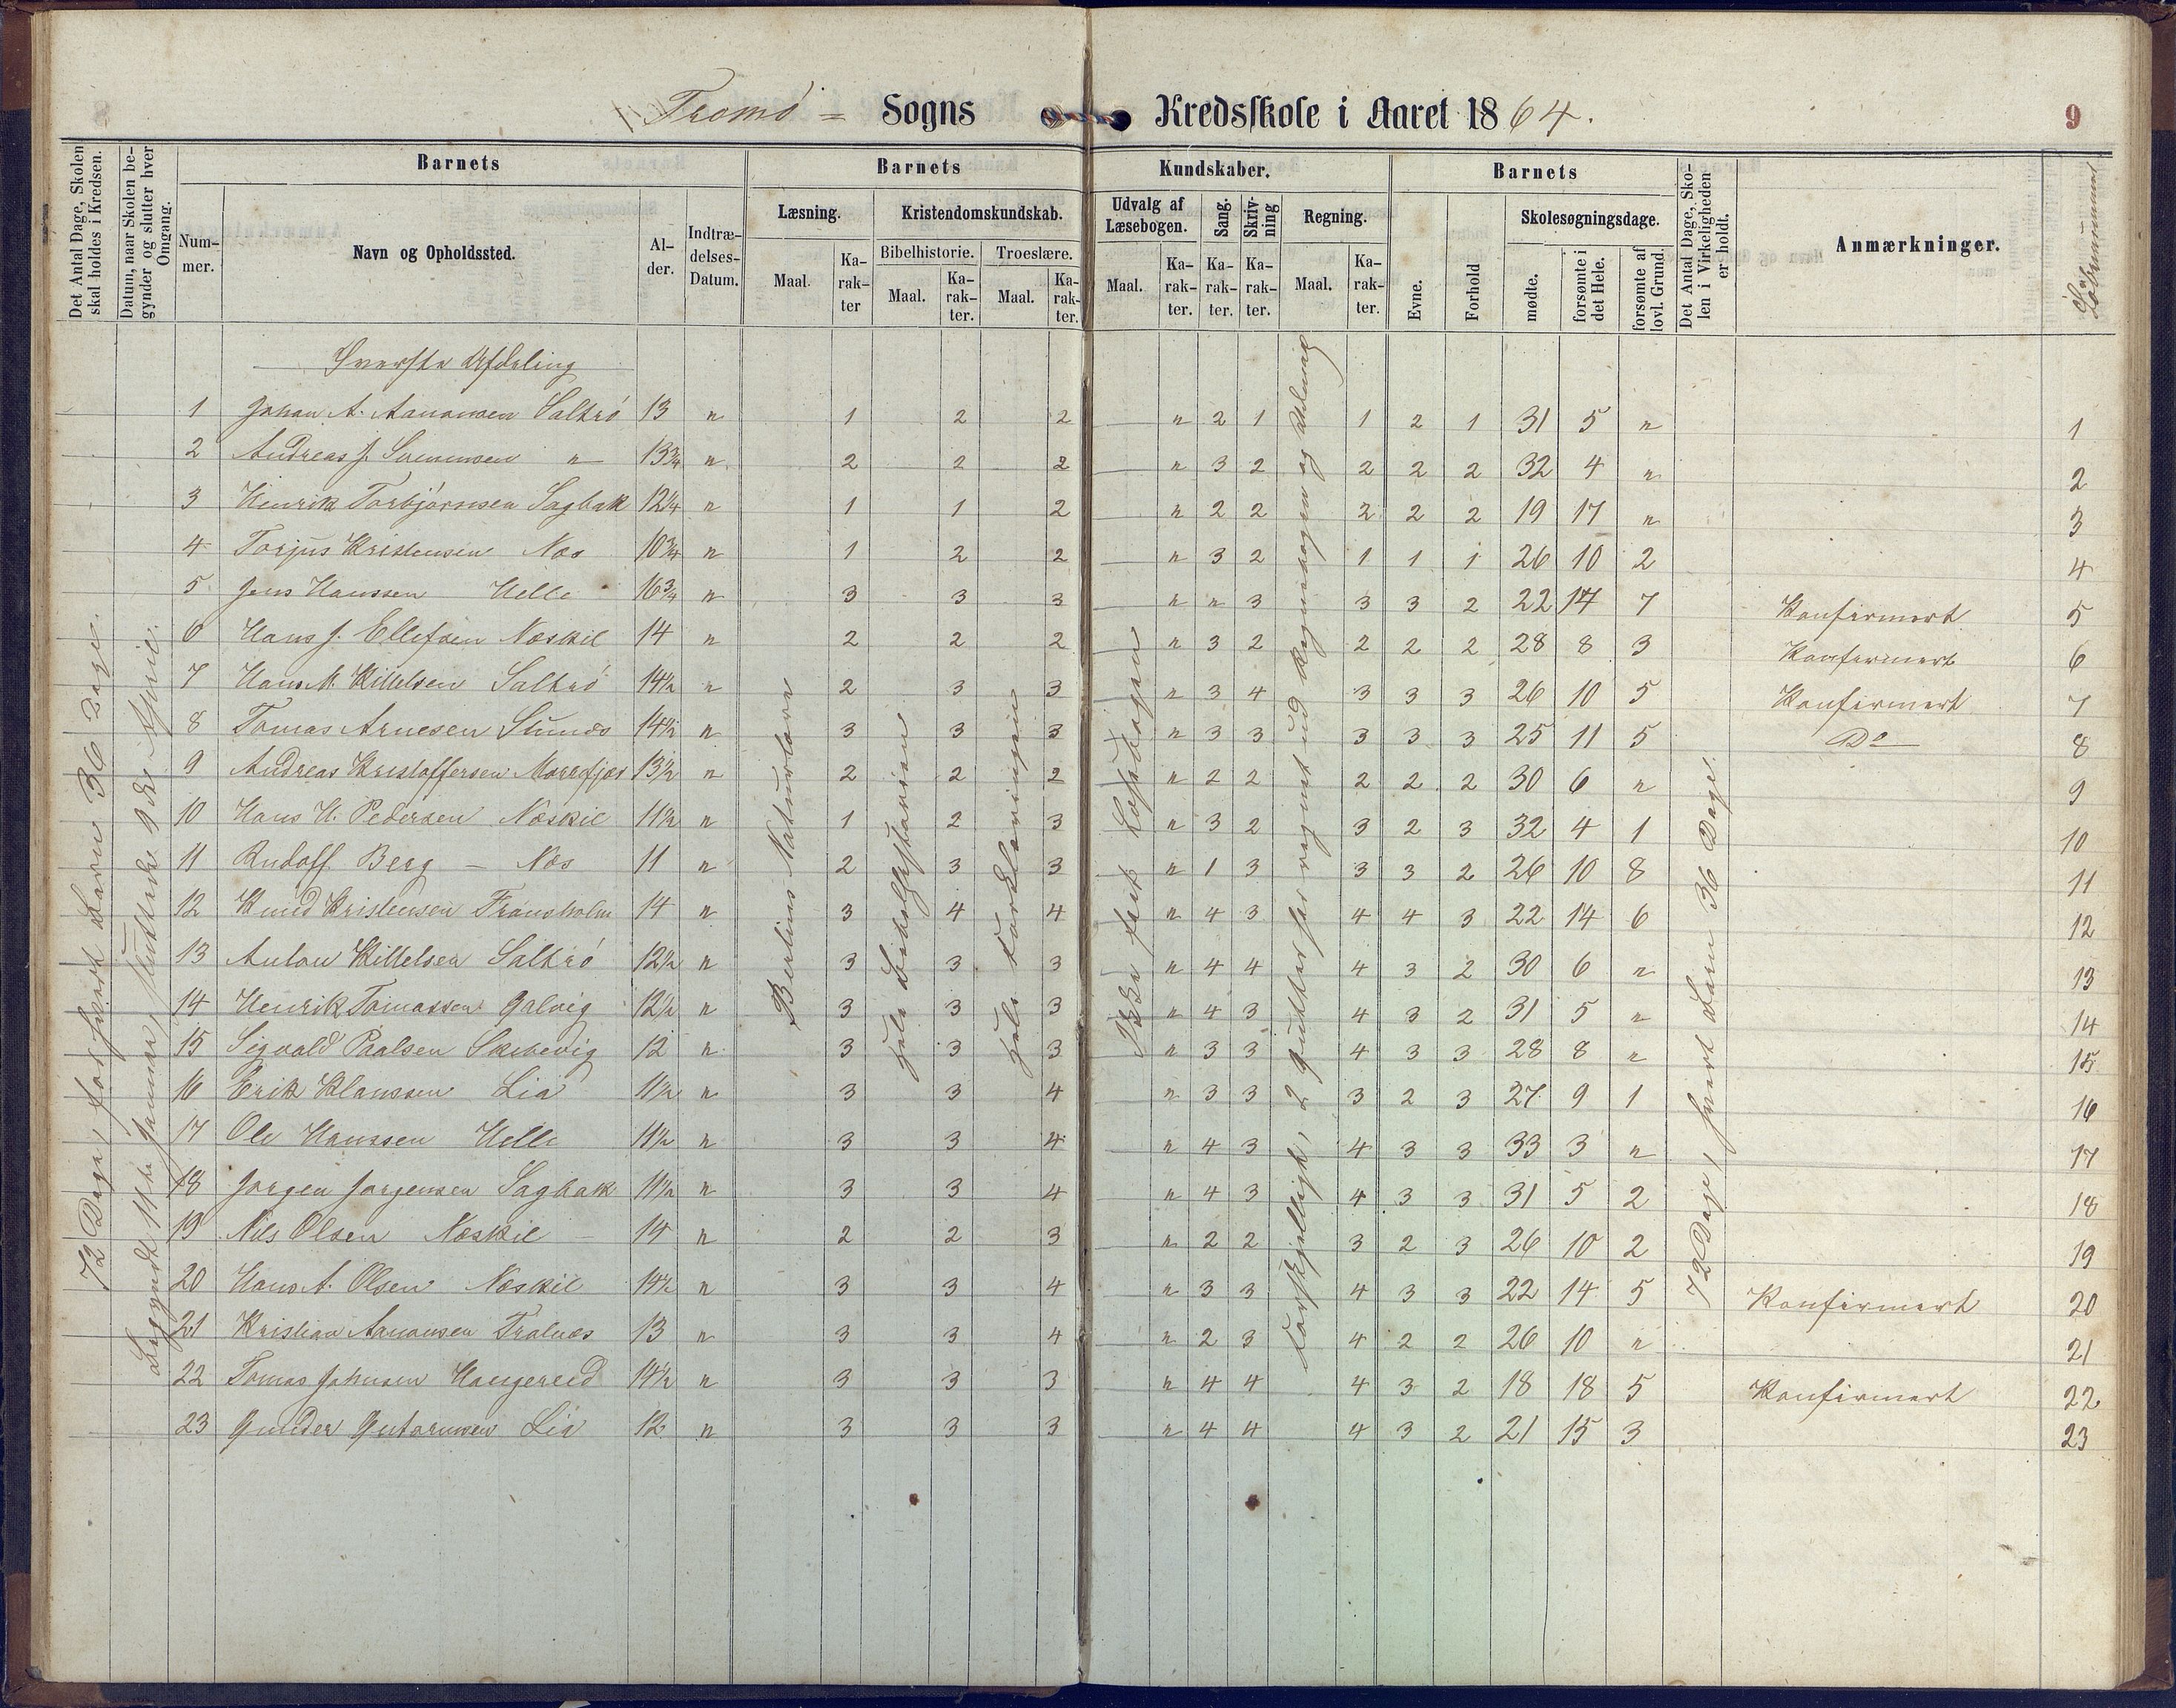 Tromø = Sogns Kredsskole i Aaret 1864.
9
Det Antal Dage, Skolen skal holdes i Kredsen.
Datum, naar Skolen begynder og slutter hver Omgang.
Barnets
Nummer.
Navn og Opholdssted.
Alder.
Indtrædelses-Datum.
Barnets Kundskaber.
Læsning.
Maal.
Karakter
Kristendomskundskab.
Bibelhistorie.
Maal.
Karakter.
Troeslære.
Maal.
Karakter.
Udvalg af Læsebogen.
Maal.
Karakter.
Sang.
Karakter.
Skrivning
Karakter.
Regning.
Maal.
Karakter.
Barnets
Evne.
Forhold
Skolesøgningsdage.
mødte.
forsømte i det Hele.
forsømte af lovl. Grund.
Det Antal Dage, Skolen i Virkeligheden er holdt.
Anmærkninger.
Løbenummer
72 Dage, for hvert Barn 36 Dage.
Begyndt 11te Januar, sluttede 9de Juni.
Berlins Naturlære
hele Bibelhistorien
hele Forklaringen
Ikke facit Læsebogen
72 Dage, hvert Barn 36 Dage.
Øverste Afdeling
1 Johan A. Aanonsen Saltrø 13 n 1 2 2 n 2 1 1 2 1 31 5 n 1
2 Andreas J. Svennsen n 13¾ n 2 2 2 n 3 2 2 2 2 32 4 n 2
3 Henrik Torbjørnsen Sagbak 12¼ n 1 1 2 n 2 2 2 2 2 19 17 n 3
4 Torjus Kristensen Næs 10¾ n 1 2 2 n 3 2 1 1 1 26 10 2 4
5 Jens Hanssen Helle 16¾ n 3 3 3 n n 3 3 3 2 22 14 7 Konfirmert 5
6 Hans J. Ellefsen Næskil 14 n 2 2 2 n 3 2 2 2 2 28 8 3 Konfirmert 6
7 Hans M. Kittelsen Saltrø 14½ n 2 3 3 n 3 4 3 3 3 26 10 5 Konfirmert 7
8 Tomas Arnesen Stunæs 14½ n 3 3 3 n 3 3 3 3 3 25 11 5 Do 8
9 Andreas Kristoffersen Marefjær 13½ n 2 2 2 n 2 2 2 2 2 30 6 n 9
10 Hans H. Pedersen Næskil 11½ n 1 2 3 n 3 2 3 2 3 32 4 1 10
11 Rudolf Berg — Næs 11 n 2 3 3 n 1 3 3 3 2 26 10 8 11
12 Knud Kristensen Frausholm 14 n 3 4 4 n 4 3 4 4 3 22 14 6 12
13 Anton Kittelsen Saltrø 12½ n 3 3 3 n 4 4 4 3 2 30 6 n 13
14 Henrik Tomassen Galvig 12½ n 3 3 3 n 4 3 4 3 2 31 5 n 14
15 Sigvald Paalsen Skibevig 12 n 3 3 3 n 3 3 4 3 3 28 8 n 15
16 Erik Klaussen Lia 11½ n 3 3 4 n 3 3 3 2 3 27 9 1 16
17 Ole Hanssen Helle 11½ n 3 3 4 n 4 3 4 3 3 33 3 n 17
18 Jørgen Jørgensen Sagbak 11½ n 3 3 4 n 4 3 4 3 3 31 5 2 18
19 Nils Olsen Næskil 14 n 2 2 3 n 2 2 3 2 3 26 10 2 19
20 Hans A. Olsen Næskil 14½ n 3 3 4 n 3 3 4 3 3 22 14 5 Konfirmert 20
21 Kristian Aanonsen Tralnæs 13 n 3 3 4 n 2 3 4 2 2 26 10 n 21
22 Tomas Johnsen Haugereid 14½ n 3 3 3 n 4 4 4 3 2 18 18 5 Konfirmert 22
23 Gunder Gutormsen Lia 12 n 3 3 3 n 4 4 4 3 2 21 15 3 23